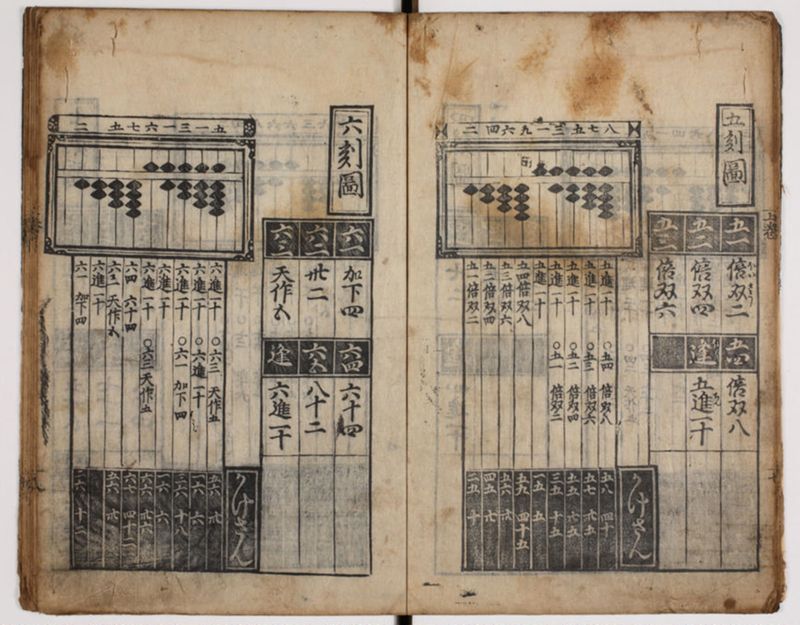 五刻圖
五一 倍双二
五二 倍双四
五三 倍双六
五四 倍双八
逢 五進一十
二 四六九一三五七八
五進一十 〇五四 倍双八
五進一十 〇五三 倍双六
五進一十 〇五二 倍双四
五進一十 〇五一 倍双二
五進一十
五四倍双八
五三倍双六
五二倍双四
五一 倍双二
かけさん
五八 四十
五七 卅五
五五 廿五
三五 十五
一五 五
五九 四十五
五六 卅
四五 廿
二五 十
六刻圖
六一 加下四
六二 卅二
六三 天作五
六四 六十四
六五 八十二
逢 六進一十
二 五七六一三一五
六進一十 〇六三 天作五
六進一十 〇六進一十
六進一十 〇六一 加下四
六進一十
六進一十 〇六三 天作五
六四 六十四
六三 天作五
六進一十
六一 加下四
かけさん
五六 卅
一六 六
三六 十八
一六 六
六六 卅六
六七 四十二
五六 卅
二六 十二